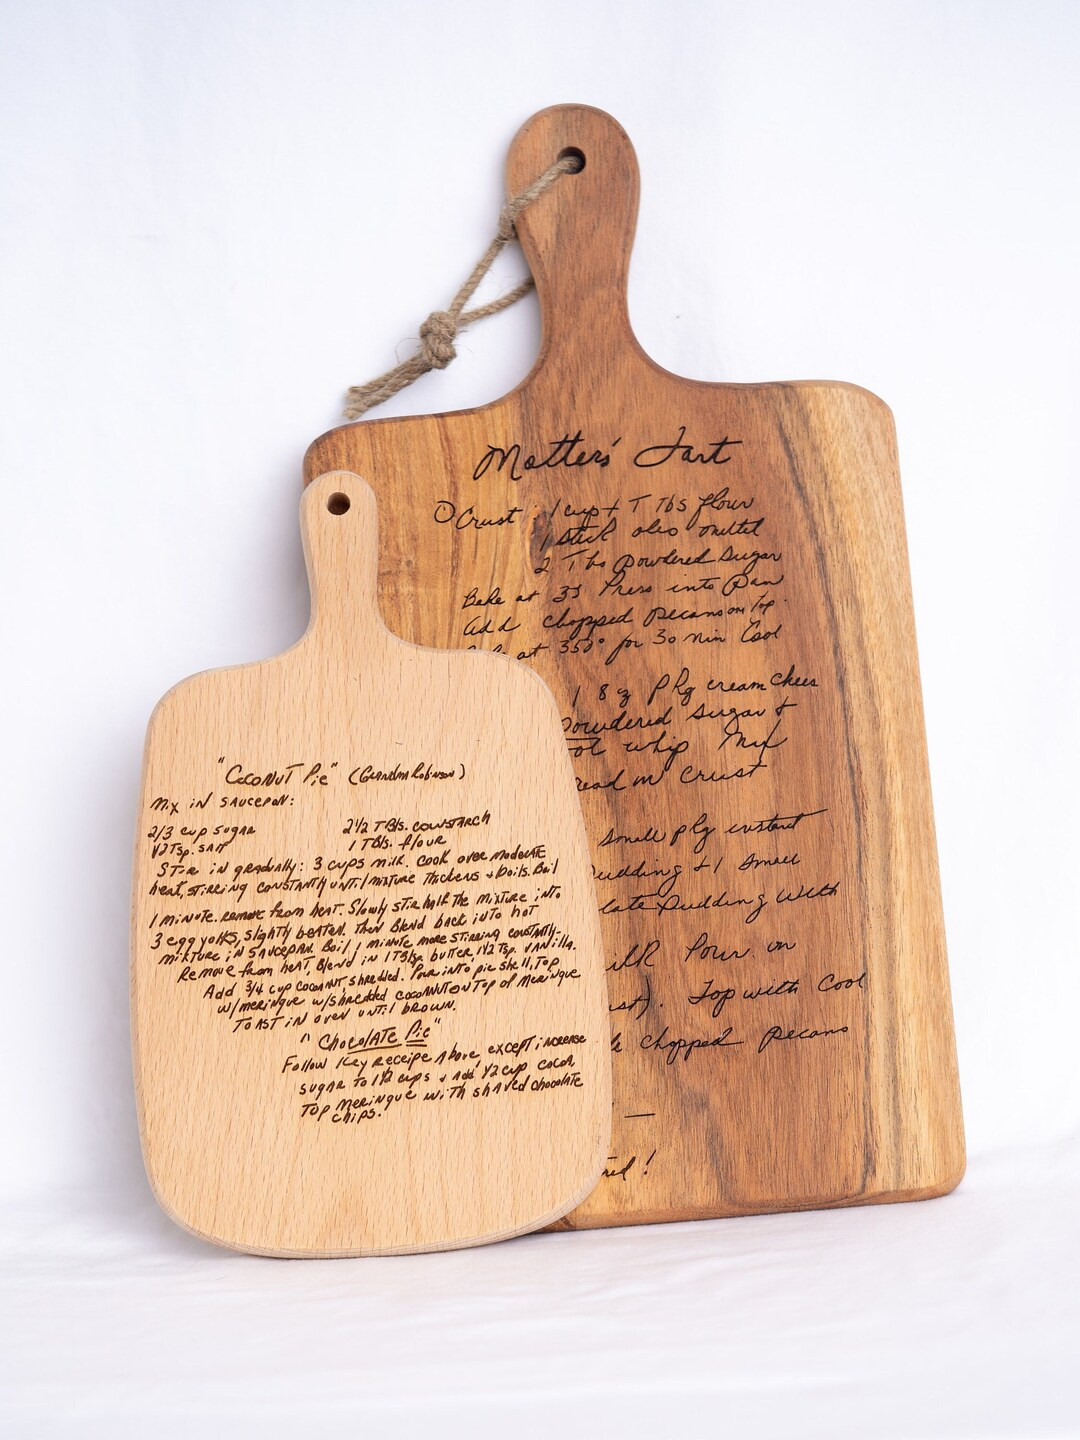 Motter's Tart
① Crust : 1 cup + 1 Tbs flour
1 stick oleo melted
2 Tbs Powdered Sugar
Bake at 35 Press into Pan
Add chopped Pecans on Top.
at 350° for 30 min Cool
1 8 oz pkg cream chees
Powdered sugar +
ool whip Mix
ead on crust
small pkg instant
udding + 1 small
late Pudding with
ilk Pour on
ust). Top with Cool
chopped Pecans
—
red!
"Coconut Pie" (Grandma Robinson)
Mix in saucepan:
2/3 cup sugar 2 1/2 TBls. cornstarch
1/2 Tsp. salt 1 TBls. flour
Stir in gradually: 3 cups milk. Cook over moderate
heat, stirring constantly until mixture thickens & boils. Boil
1 minute. remove from heat. Slowly stir half the mixture into
3 egg yolks, slightly beaten. Then Blend back into hot
mixture in saucepan. Boil 1 minute more stirring constantly.
Remove from heat, Blend in 1 butter, 1 1/2 Tsp. vanilla.
Add 3/4 cup coconut, shredded. Pour into pie shell, Top
w/meringue w/shredded coconut on Top of Meringue
Toast in oven until brown.
"Chocolate Pie"
Follow Key receipe Above except increase
sugar to 1 1/2 cups & Add 1/2 cup
Top Meringue with shaved chocolate
chips.